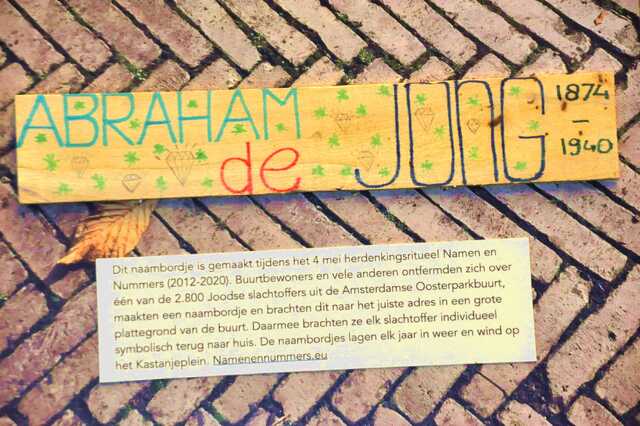 ABRAHAM de JONG 1874
–
1940
Dit naambordje is gemaakt tijdens het 4 mei herdenkingsritueel Namen en
Nummers (2012-2020). Buurtbewoners en vele anderen ontfermden zich over
één van de 2.800 Joodse slachtoffers uit de Amsterdamse Oosterparkbuurt,
maakten een naambordje en brachten dit naar het juiste adres in een grote
plattegrond van de buurt. Daarmee brachten ze elk slachtoffer individueel
symbolisch terug naar huis. De naambordjes lagen elk jaar in weer en wind op
het Kastanjeplein. Namenennummers.eu